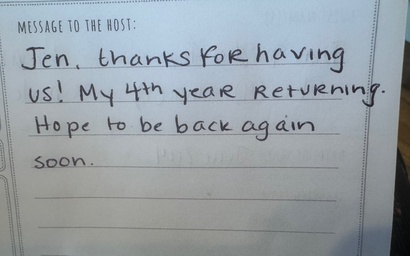 MESSAGE TO THE HOST:
Jen, thanks for having
us! My 4th year Returning.
Hope to be back again
soon.